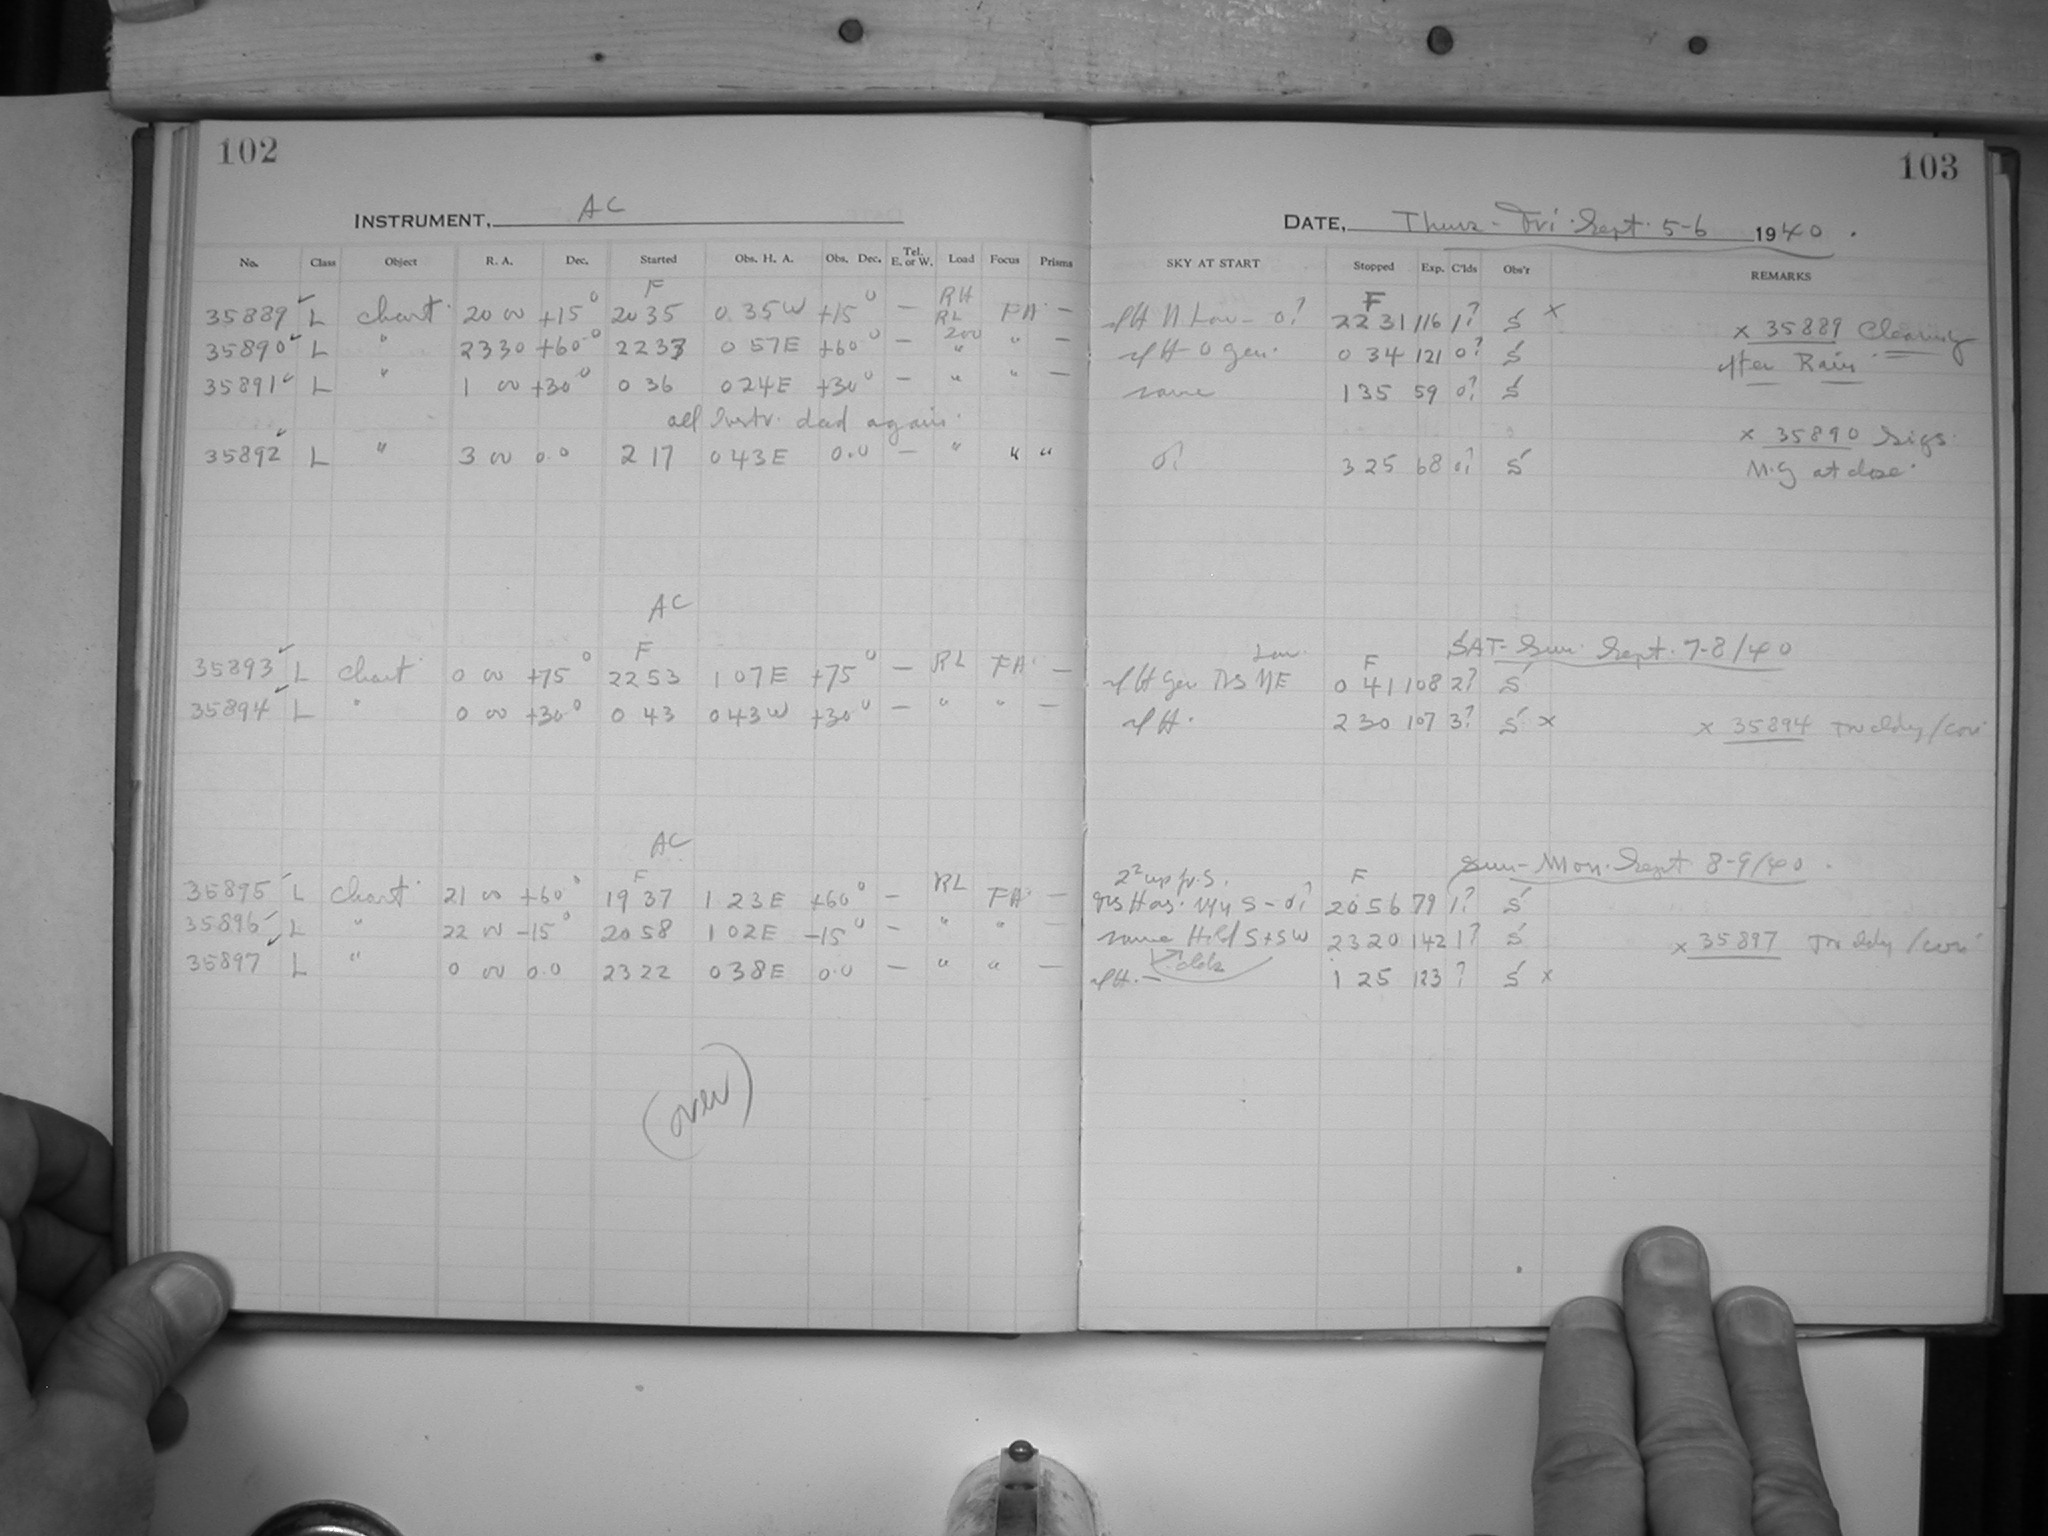 102
103
INSTRUMENT, AC
DATE, Thurs - Fri Sept 5-6 1940.
No. Class Object R. A. Dec. Started Obs. H. A. Obs. Dec. Tel. E. or W. Load Focus Prisms SKY AT START Stopped Exp. C'lds Obs'r REMARKS
F RH F
35889 L Chart 20 00 +15° 20 35 0 35W +15° — RL FA — N Low - 0? 22 31 116 1? S x x 35889 Clearing
200
35890 L " 23 30 +60° 22 33 0 57E +60° — " " — 0 gen. 0 34 121 0? S after Rain
35891 L " 1 00 +30° 0 36 0 24E +30° — " " — same 1 35 59 0? S
all Instr. dead again.
x 35890
35892 L " 3 00 0.0 2 17 0 43E 0.0 — " " " 0? 3 25 68 0? S M.G at close
AC
F Low F SAT - Sun. Sept. 7-8/40
35893 L Chart 0 00 +75° 22 53 1 07E +75° — RL FA — gen NE 0 41 108 2? S
35894 L " 0 00 +30° 0 43 0 43W +30° — " " — 2 30 107 3? S x x 35894
AC
F F Sun - Mon. Sept 8-9/40.
35895 L Chart 21 00 +60° 19 37 1 23E +60° — RL FA — S - 0? 20 56 79 1? S
35896 L " 22 00 -15° 20 58 1 02E -15° — " " — same S + SW 23 20 142 1? S x 35897
35897 L " 0 00 0.0 23 22 0 38E 0.0 — " " — 1 25 123 ? S x
(over)